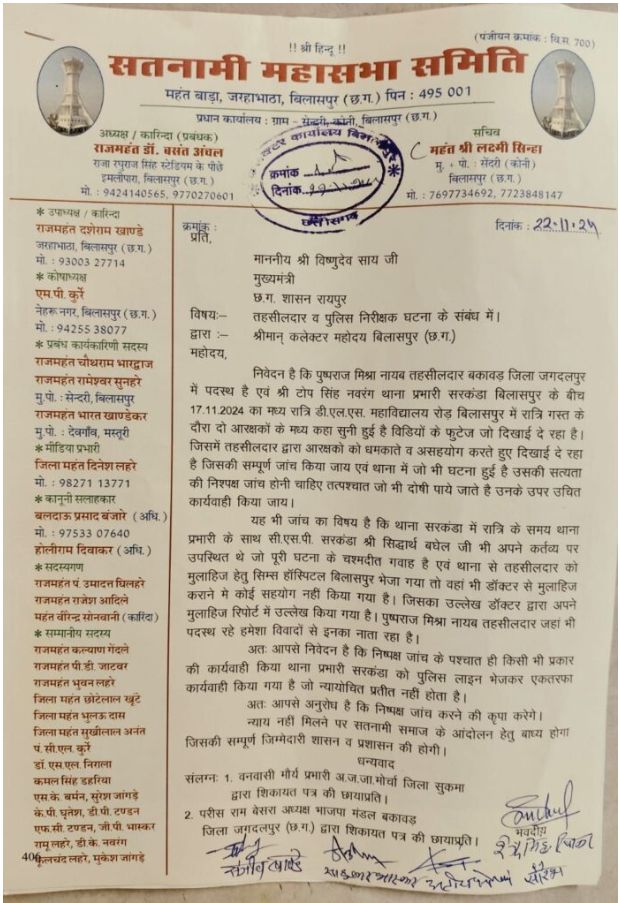 (पंजीयन क्रमांक : वि.स. 700)
!! श्री हिन्दू !!
सतनामी महासभा समिति
महंत बाड़ा, जरहाभाठा, बिलासपुर (छ.ग.) पिन : 495 001
प्रधान कार्यालय : ग्राम – सेन्दरी, कोनी, बिलासपुर (छ.ग.)
अध्यक्ष / कारिन्दा (प्रबंधक)
राजमहंत डॉ. बसंत अंचल
राजा रघुराज सिंह स्टेडियम के पीछे
इमलीपारा, बिलासपुर (छ.ग.)
मो. : 9424140565, 9770270601
कलेक्टर कार्यालय बिलासपुर
क्रमांक
दिनांक
छत्तीसगढ़
सचिव
महंत श्री लक्ष्मी सिन्हा
मु. + पो. : सेंदरी (कोनी)
बिलासपुर (छ.ग.)
मो. : 7697734692, 7723848147
* उपाध्यक्ष / कारिन्दा
राजमहंत दशेराम खाण्डे
जरहाभाठा, बिलासपुर (छ.ग.)
मो. : 93003 27714
* कोषाध्यक्ष
एम.पी. कुर्रे
नेहरू नगर, बिलासपुर (छ.ग.)
मो. : 94255 38077
* प्रबंध कार्यकारिणी सदस्य
राजमहंत चौथराम भारद्वाज
राजमहंत रामेश्वर सुनहरे
मु.पो. : सेन्दरी, बिलासपुर
राजमहंत भारत खाण्डेकर
मु.पो. : देवगाँव, मस्तूरी
* मीडिया प्रभारी
जिला महंत दिनेश लहरे
मो. : 98271 13771
* कानूनी सलाहकार
बलदाऊ प्रसाद बंजारे (अधि.)
मो. : 97533 07640
होलीराम दिवाकर (अधि.)
* सदस्यगण
राजमहंत पं. उमादत्त घिलहरे
राजमहंत राजेश आदिले
महंत वीरेन्द्र सोनवानी (कारिंदा)
* सम्मानीय सदस्य
राजमहंत कल्याण गेंदले
राजमहंत पी.डी. जाटवर
राजमहंत भुवन लहरे
जिला महंत छोटेलाल खूंटे
जिला महंत भुलऊ दास
जिला महंत सुखीलाल अनंत
पं. सी.एल. कुर्रे
डॉ. एस.एल. निराला
कमल सिंह डहरिया
एस.के. बर्मन, सुरेश जांगड़े
के.पी. घृतेश, डी.पी. टण्डन
एफ.सी. टण्डन, जी.पी. भास्कर
रामू लहरे, डी.के. नवरंग
फूलचंद लहरे, मुकेश जांगड़े
400
क्रमांक :
दिनांक : 22.11.24
प्रति,
माननीय श्री विष्णुदेव साय जी
मुख्यमंत्री
छ.ग. शासन रायपुर
विषय:– तहसीलदार व पुलिस निरीक्षक घटना के संबंध में।
द्वारा :– श्रीमान् कलेक्टर महोदय बिलासपुर (छ.ग.)
महोदय,
निवेदन है कि पुष्पराज मिश्रा नायब तहसीलदार बकावड़ जिला जगदलपुर
में पदस्थ है एवं श्री टोप सिंह नवरंग थाना प्रभारी सरकंडा बिलासपुर के बीच
17.11.2024 का मध्य रात्रि डी.एल.एस. महाविद्यालय रोड़ बिलासपुर में रात्रि गस्त के
दौरा दो आरक्षकों के मध्य कहा सुनी हुई है विडियों के फुटेज जो दिखाई दे रहा है।
जिसमें तहसीलदार द्वारा आरक्षको को धमकाते व असहयोग करते हुए दिखाई दे रहा
है जिसकी सम्पूर्ण जांच किया जाय एवं थाना में जो भी घटना हुई है उसकी सत्यता
की निश्पक्ष जांच होनी चाहिए तत्पश्चात जो भी दोषी पाये जाते है उनके उपर उचित
कार्यवाही किया जाय।
यह भी जांच का विषय है कि थाना सरकंडा में रात्रि के समय थाना
प्रभारी के साथ सी.एस.पी. सरकंडा श्री सिद्धार्थ बघेल जी भी अपने कर्तव्य पर
उपस्थित थे जो पूरी घटना के चश्मदीत गवाह है एवं थाना से तहसीलदार को
मुलाहिज हेतु सिम्स हॉस्पिटल बिलासपुर भेजा गया तो वहां भी डॉक्टर से मुलाहिज
कराने मे कोई सहयोग नहीं किया गया है। जिसका उल्लेख डॉक्टर द्वारा अपने
मुलाहिज रिपोर्ट में उल्लेख किया गया है। पुष्पराज मिश्रा नायब तहसीलदार जहां भी
पदस्थ रहे हमेशा विवादों से इनका नाता रहा है।
अतः आपसे निवेदन है कि निष्पक्ष जांच के पश्चात ही किसी भी प्रकार
की कार्यवाही किया थाना प्रभारी सरकंडा को पुलिस लाईन भेजकर एकतरफा
कार्यवाही किया गया है जो न्यायोचित प्रतीत नहीं होता है।
अतः आपसे अनुरोध है कि निष्पक्ष जांच करने की कृपा करेगे।
न्याय नहीं मिलने पर सतनामी समाज के आंदोलन हेतु बाध्य होगा
जिसकी सम्पूर्ण जिम्मेदारी शासन व प्रशासन की होगी।
धन्यवाद
संलग्न: 1. वनवासी मौर्य प्रभारी अ.ज.जा.मोर्चा जिला सुकमा
द्वारा शिकायत पत्र की छायाप्रति।
2. परीस राम बेसरा अध्यक्ष भाजपा मंडल बकावड़
जिला जगदलपुर (छ.ग.) द्वारा शिकायत पत्र की छायाप्रति।
भवदीय